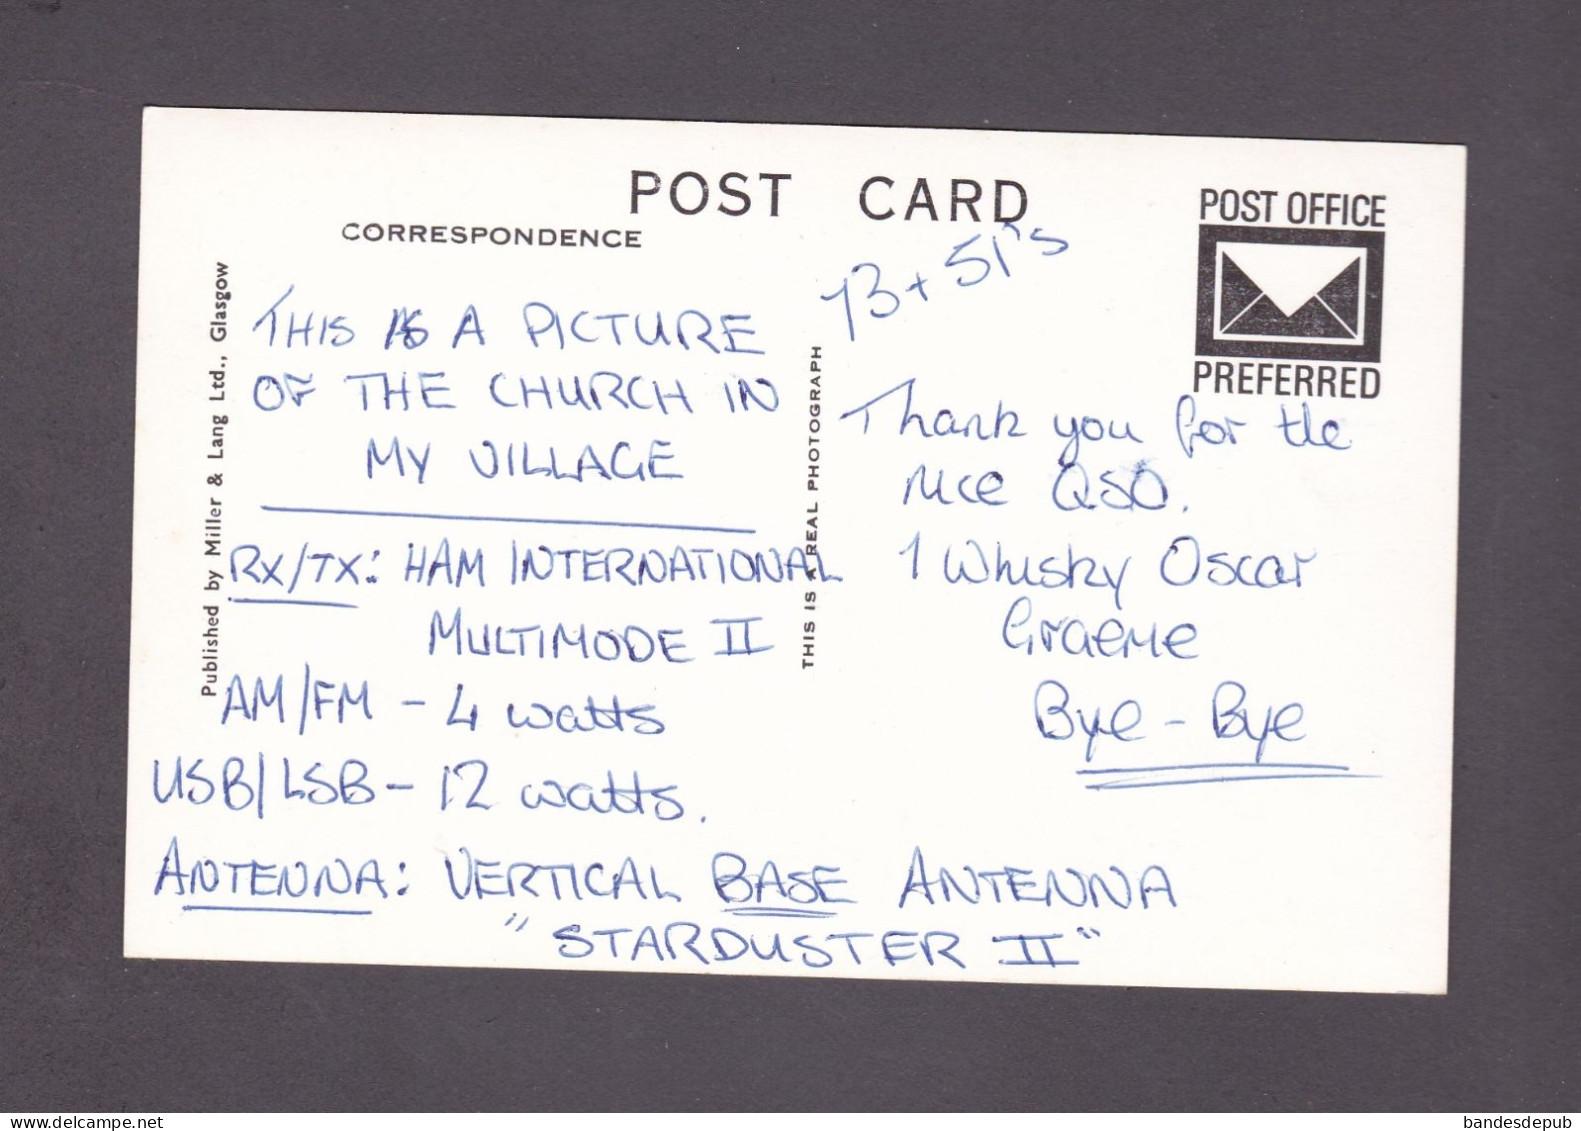 POST CARD
CORRESPONDENCE
POST OFFICE
PREFERRED
Published by Miller & Lang Ltd., Glasgow
THIS IS A PICTURE
OF THE CHURCH IN
MY VILLAGE
RX/TX: HAM INTERNATIONAL
MULTIMODE II
AM/FM - 4 watts
USB/LSB - 12 watts.
ANTENNA: VERTICAL BASE ANTENNA
"STARDUSTER II"
THIS IS A REAL PHOTOGRAPH
73 + 51's
Thank you for the
nice QSO.
1 Whisky Oscar
Graeme
Bye - Bye
delcampe.net
bandesdepub